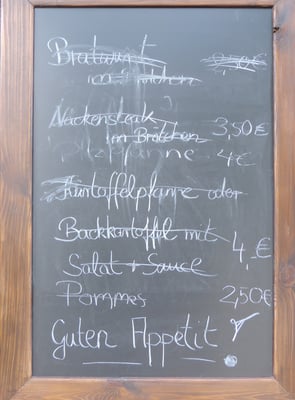 Bratwurst
im Brötchen
Nackensteak 3,50€
im Brötchen
pfanne 4€
Kartoffelpfanne oder
Backkartoffel mit 4,€
Salat + Sauce
Pommes 2,50€
Guten Appetit!